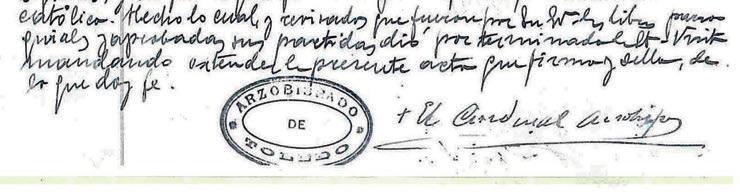 católico. Hecho lo cual, y revisados que fueron por Su Ema. los libros parro
quiales y aprobadas sus partidas, dió por terminada la Sta. Visita
mandando extender la presente acta que firma y sella, de
lo que doy fe.
ARZOBISPADO
DE
TOLEDO
+ El Cardenal Arzobispo